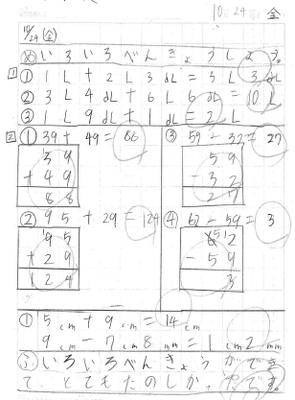 10 24 金
10/24 (金)
め いろいろべんきょうしよう。
1 ① 1L + 2L3dL = 3L3dL
② 3L4dL + 6L6dL = 10L
③ 1L9dL + 1dL = 2L
2 ① 39 + 49 = 88
39
+ 49
88
③ 59 - 32 = 27
59
- 32
27
② 95 + 29 = 124
95
+ 29
124
④ 62 - 59 = 3
62
- 59
3
① 5cm + 9cm = 14cm
9cm - 7cm8mm = 1cm2mm
いろいろべんきょうができ
て、とてもたのしかったです。